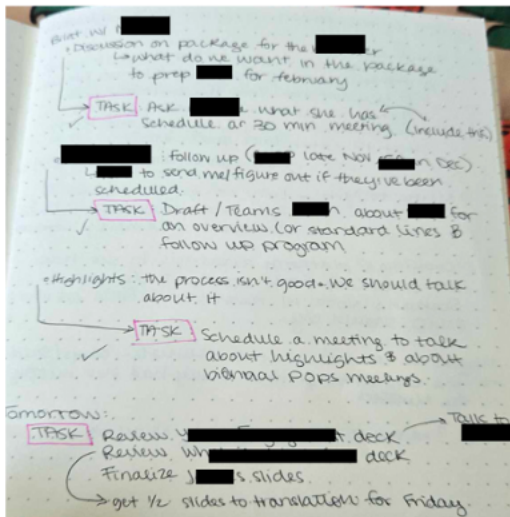 Brief w/
• Discussion on package for the
↳ what do we want in the package
to prep for february
TASK Ask what she has
schedule or 30 min meeting (include this)
✓
: follow up ( late Nov Dec)
↳ to send me/figure out if they've been
scheduled.
TASK Draft / Teams about for
✓ an overview (or standard lines &
follow up program
• Highlights: the process isn't good. We should talk
about it
TASK Schedule a meeting to talk
✓ about highlights & about
POPS meetings.
Tomorrow:
TASK Review deck → Talk to
Review deck
Finalize slides
→ get 1/2 slides to translation for Friday